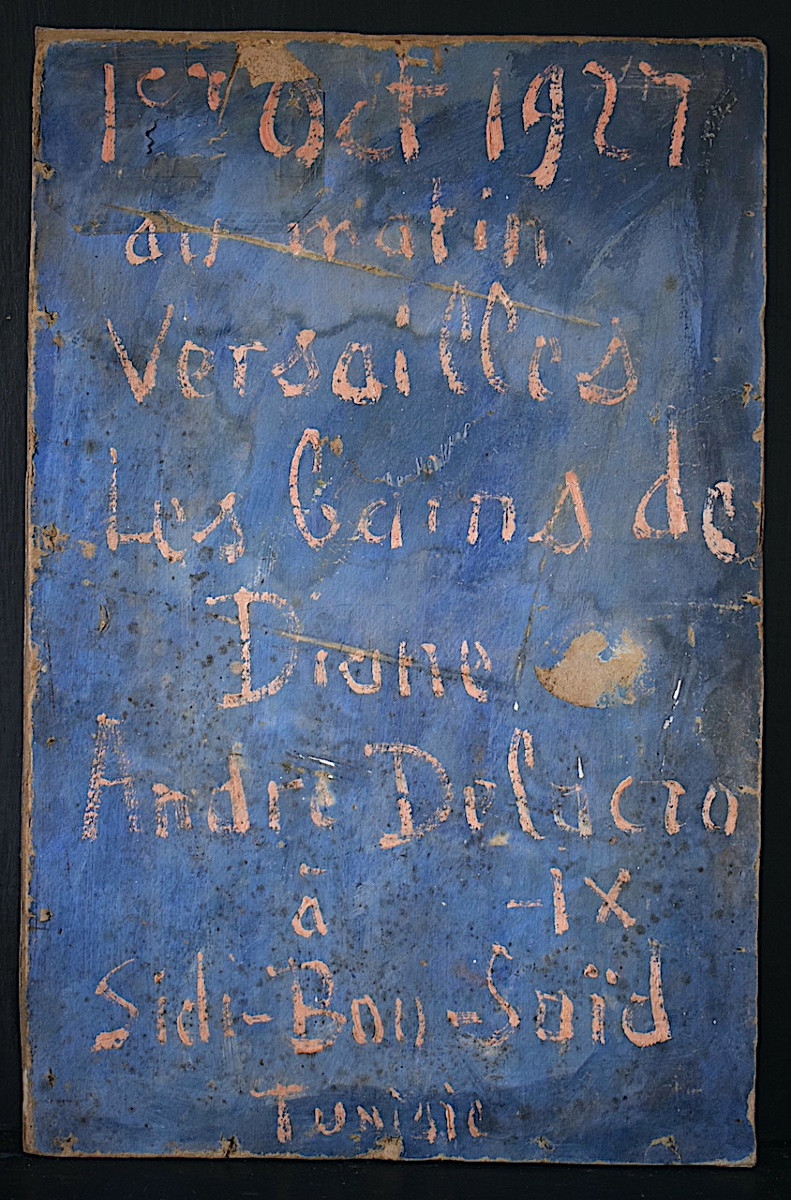 1er Oct 1927
au matin
Versailles
Les Gains de
Diane
André Delacro
à -ix
Sidi-Bou-Saïd
Tunisie